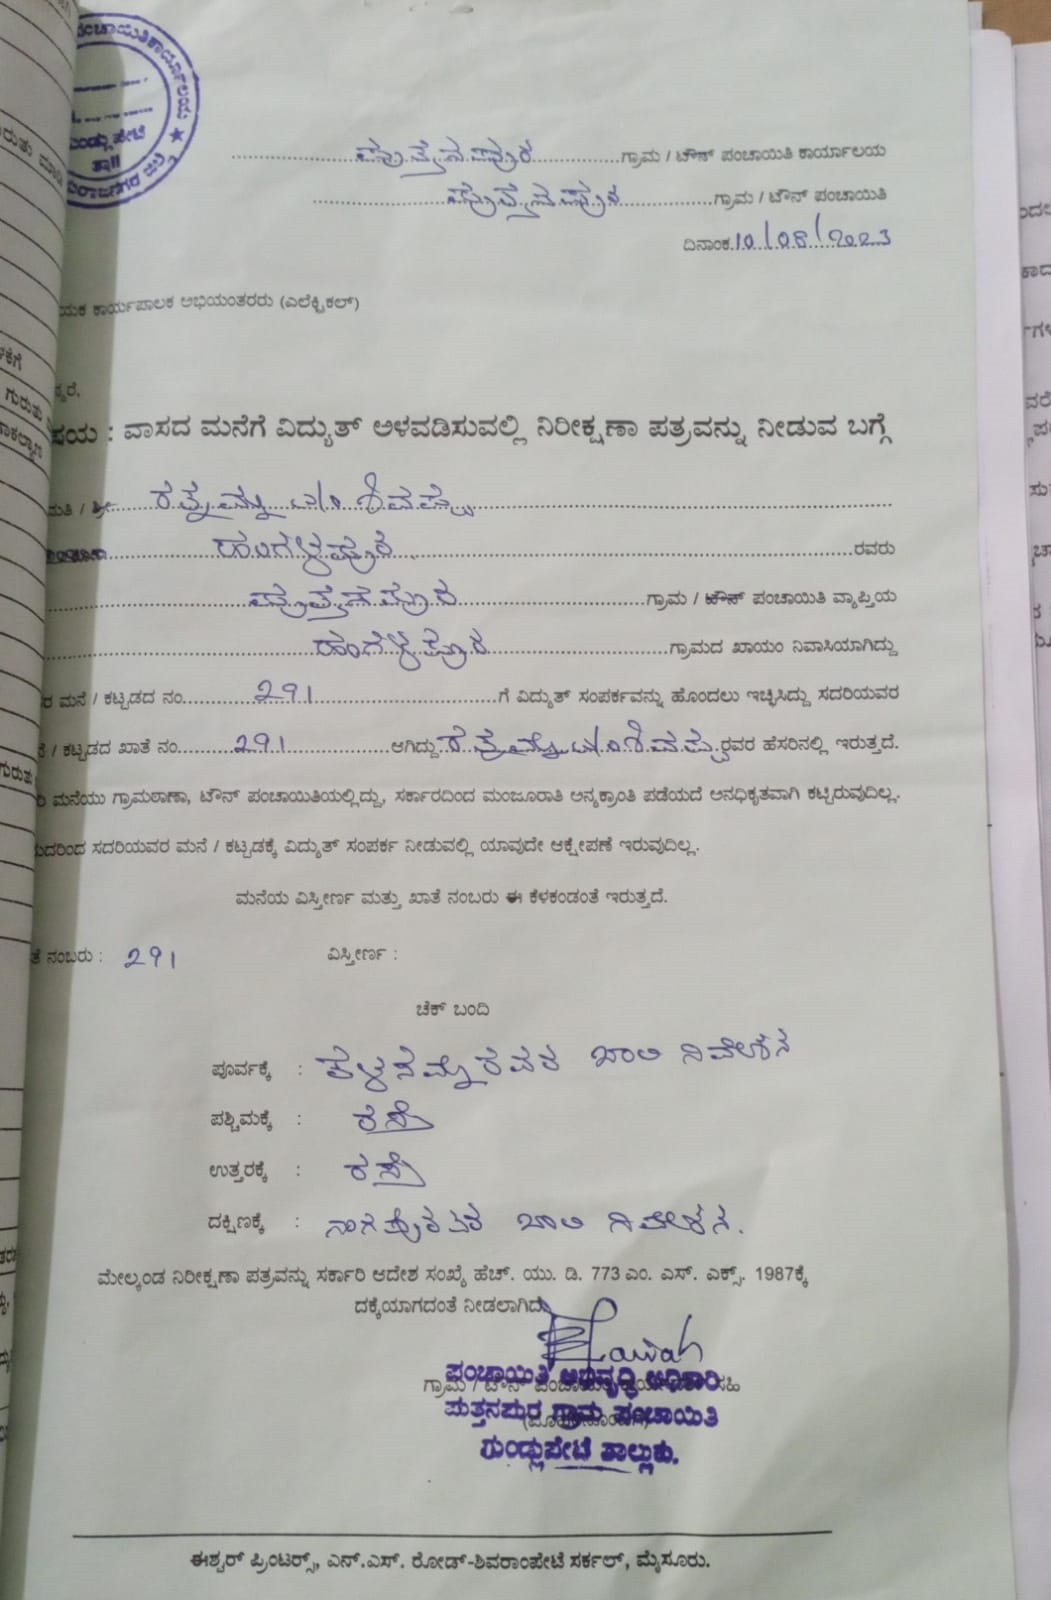 ಪಂಚಾಯಿತಿ ಕಾರ್ಯಾಲಯ ★
ತಾ॥
ಪುತ್ತನಪುರ ಗ್ರಾಮ / ಟೌನ್ ಪಂಚಾಯಿತಿ ಕಾರ್ಯಾಲಯ
ಪುತ್ತನಪುರ ಗ್ರಾಮ / ಟೌನ್ ಪಂಚಾಯಿತಿ
ದಿನಾಂಕ 10/08/2023
ಯಕ ಕಾರ್ಯಪಾಲಕ ಅಭಿಯಂತರರು (ಎಲೆಕ್ಟ್ರಿಕಲ್)
ಷಯ : ವಾಸದ ಮನೆಗೆ ವಿದ್ಯುತ್ ಅಳವಡಿಸುವಲ್ಲಿ ನಿರೀಕ್ಷಣಾ ಪತ್ರವನ್ನು ನೀಡುವ ಬಗ್ಗೆ
ಮತಿ / ಶ್ರೀ ರತ್ನಮ್ಮ ಶಿವಪ್ಪ
ಹಂಗಳಪುರ ರವರು
ಪುತ್ತನಪುರ ಗ್ರಾಮ / ಟೌನ್ ಪಂಚಾಯಿತಿ ವ್ಯಾಪ್ತಿಯ
ಹಂಗಳಪುರ ಗ್ರಾಮದ ಖಾಯಂ ನಿವಾಸಿಯಾಗಿದ್ದು
ರ ಮನೆ / ಕಟ್ಟಡದ ನಂ. 291 ಗೆ ವಿದ್ಯುತ್ ಸಂಪರ್ಕವನ್ನು ಹೊಂದಲು ಇಚ್ಛಿಸಿದ್ದು ಸದರಿಯವರ
/ ಕಟ್ಟಡದ ಖಾತೆ ನಂ. 291 ಆಗಿದ್ದು ರತ್ನಮ್ಮ ಶಿವಪ್ಪ ರವರ ಹೆಸರಿನಲ್ಲಿ ಇರುತ್ತದೆ.
ರಿ ಮನೆಯು ಗ್ರಾಮಠಾಣಾ, ಟೌನ್ ಪಂಚಾಯಿತಿಯಲ್ಲಿದ್ದು, ಸರ್ಕಾರದಿಂದ ಮಂಜೂರಾತಿ ಅನ್ಯಕ್ರಾಂತಿ ಪಡೆಯದೆ ಅನಧಿಕೃತವಾಗಿ ಕಟ್ಟಿರುವುದಿಲ್ಲ.
ದರಿಂದ ಸದರಿಯವರ ಮನೆ / ಕಟ್ಟಡಕ್ಕೆ ವಿದ್ಯುತ್ ಸಂಪರ್ಕ ನೀಡುವಲ್ಲಿ ಯಾವುದೇ ಆಕ್ಷೇಪಣೆ ಇರುವುದಿಲ್ಲ.
ಮನೆಯ ವಿಸ್ತೀರ್ಣ ಮತ್ತು ಖಾತೆ ನಂಬರು ಈ ಕೆಳಕಂಡಂತೆ ಇರುತ್ತದೆ.
ತೆ ನಂಬರು : 291 ವಿಸ್ತೀರ್ಣ :
ಚೆಕ್ ಬಂದಿ
ಪೂರ್ವಕ್ಕೆ : ರವರ ಖಾಲಿ ನಿವೇಶನ
ಪಶ್ಚಿಮಕ್ಕೆ : ರಸ್ತೆ
ಉತ್ತರಕ್ಕೆ : ರಸ್ತೆ
ದಕ್ಷಿಣಕ್ಕೆ : ಖಾಲಿ ನಿವೇಶನ.
ಮೇಲ್ಕಂಡ ನಿರೀಕ್ಷಣಾ ಪತ್ರವನ್ನು ಸರ್ಕಾರಿ ಆದೇಶ ಸಂಖ್ಯೆ ಹೆಚ್. ಯು. ಡಿ. 773 ಎಂ. ಎಸ್. ಎಕ್ಸ್. 1987ಕ್ಕೆ
ದಕ್ಕೆಯಾಗದಂತೆ ನೀಡಲಾಗಿದೆ
ಪಂಚಾಯಿತಿ ಅಭಿವೃದ್ಧಿ ಅಧಿಕಾರಿ
ಗ್ರಾಮ / ಟೌನ್ ಸಹಿ
ಪುತ್ತನಪುರ ಗ್ರಾಮ ಪಂಚಾಯಿತಿ
ಗುಂಡ್ಲುಪೇಟೆ ತಾಲ್ಲೂಕು.
ಈಶ್ವರ್ ಪ್ರಿಂಟರ್ಸ್, ಎನ್.ಎಸ್. ರೋಡ್-ಶಿವರಾಂಪೇಟೆ ಸರ್ಕಲ್, ಮೈಸೂರು.